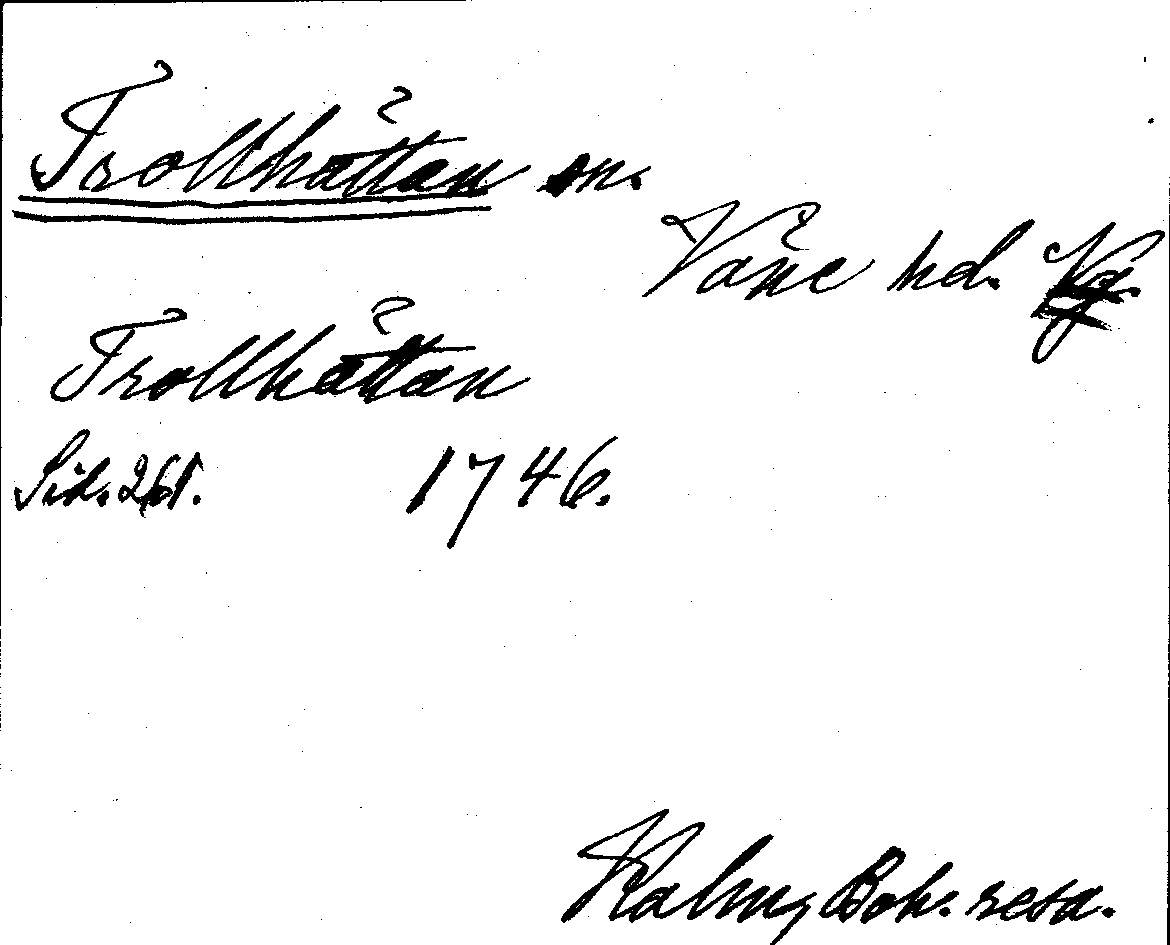 Trollhättan sn.
Väne hd. Vg.
Trollhättan
Sid. 261. 1746.
Kalm, Boh. resa.